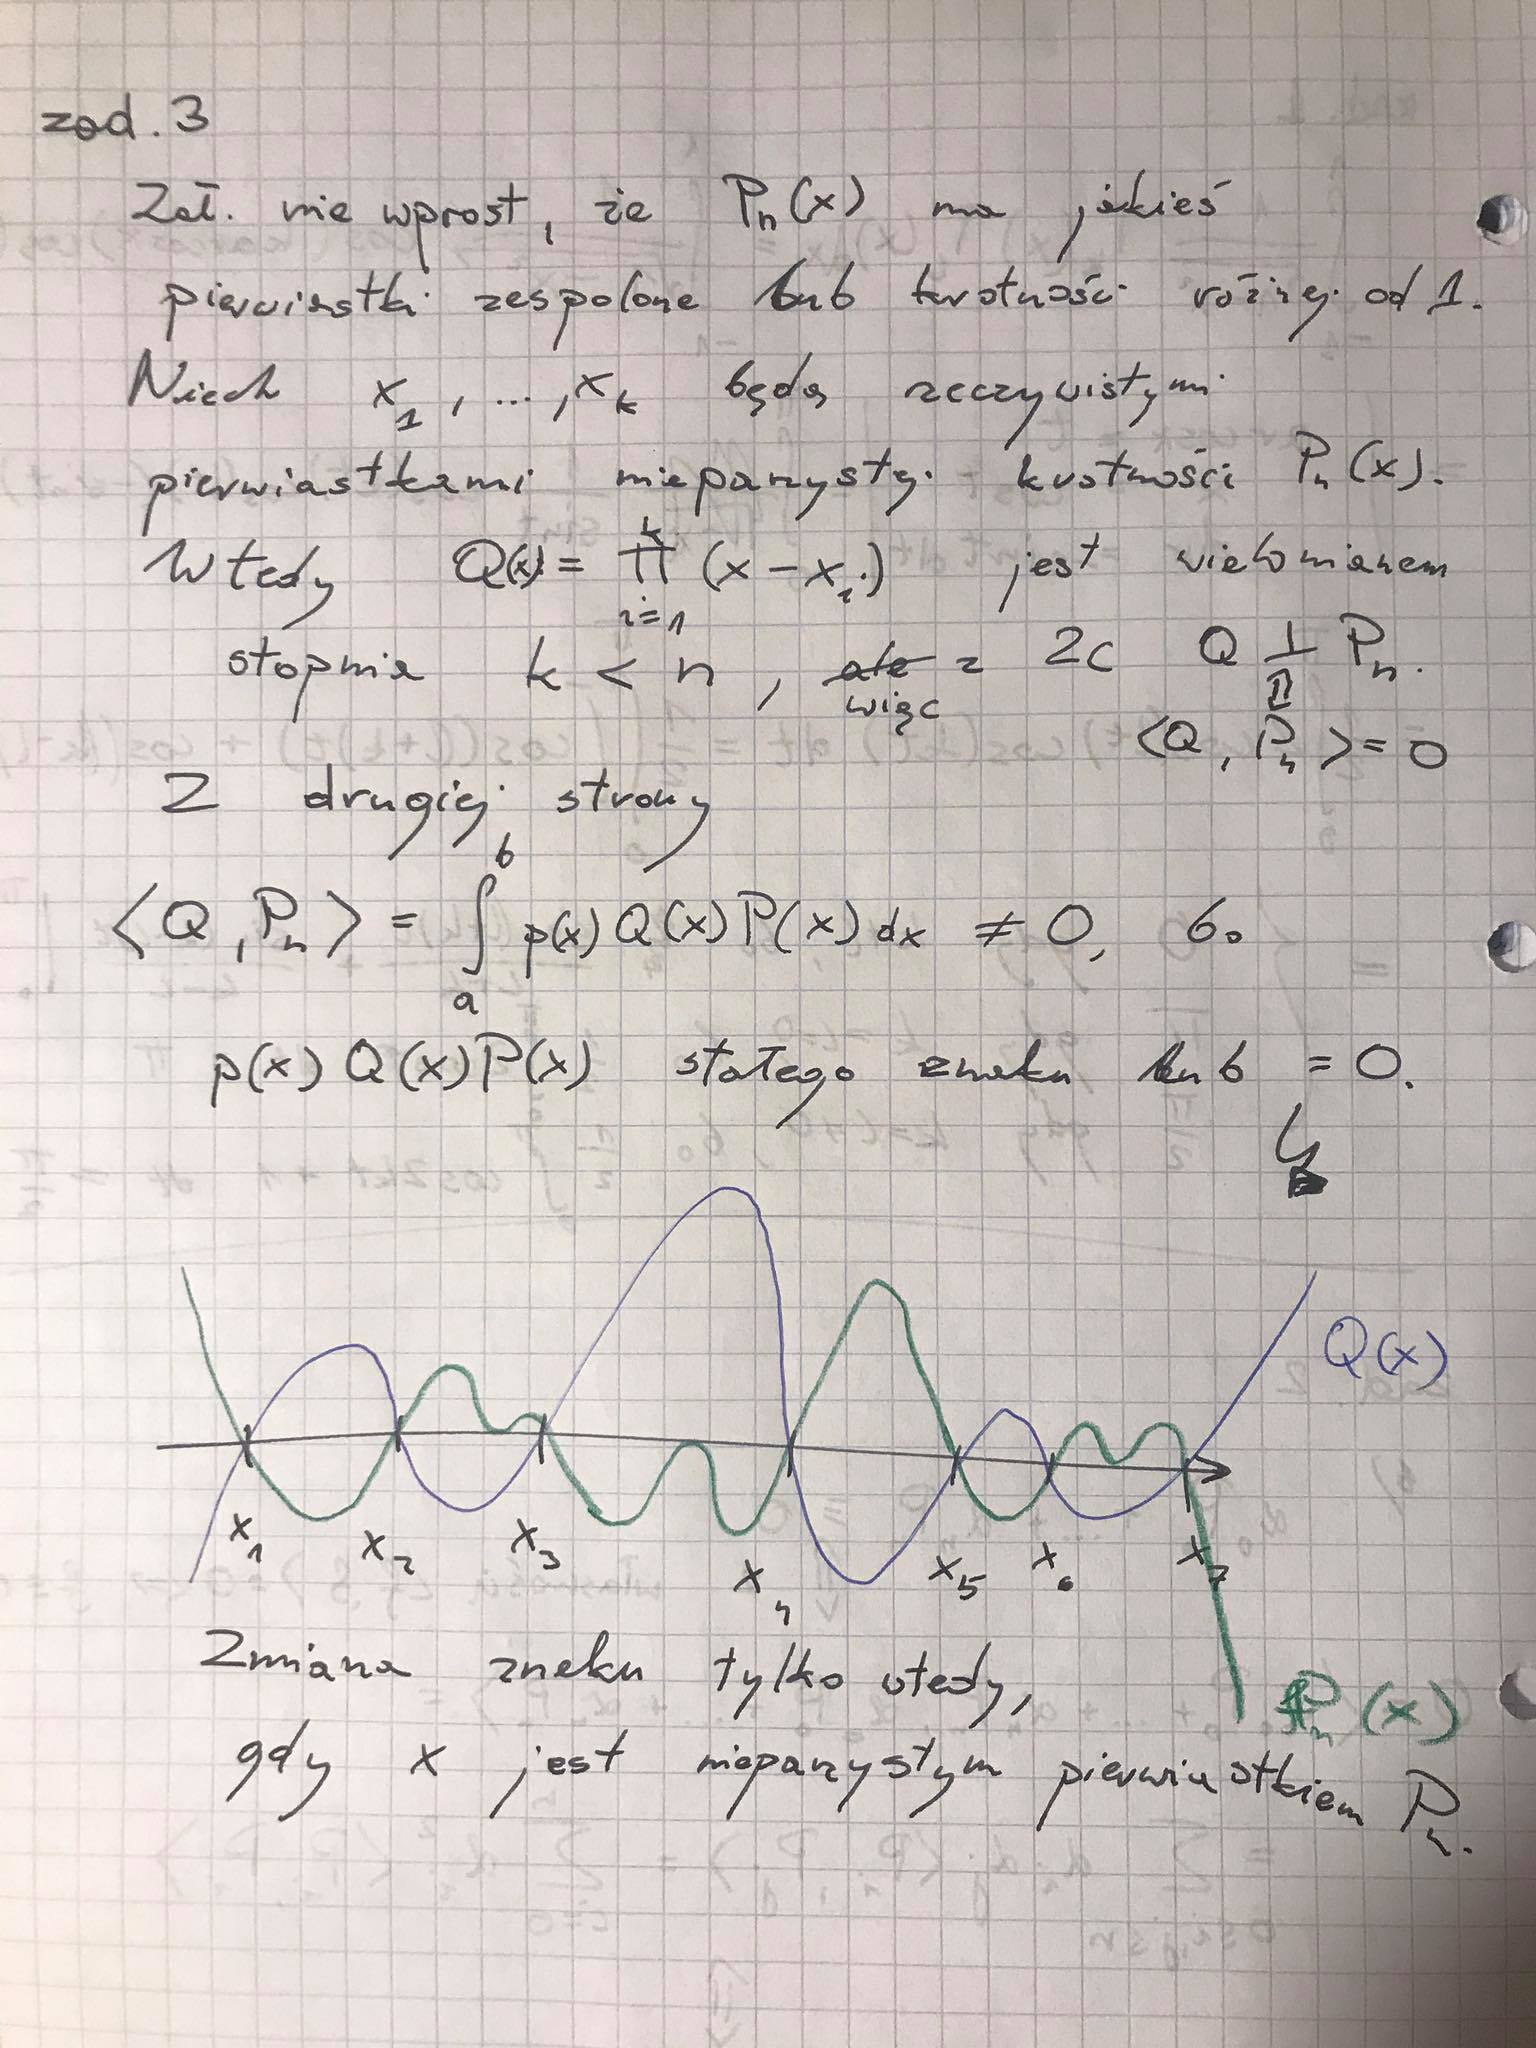 zad. 3
Zał. nie wprost, że Pₙ(x) ma jakieś
pierwiastki zespolone lub krotności różnej od 1.
Niech x₁, ..., xₖ będą rzeczywistymi
pierwiastkami nieparzystej krotności Pₙ(x).
Wtedy Q(x) = ∏ᵢ₌₁ᵏ (x − xᵢ) jest wielomianem
stopnia k < n, ~~ale~~ więc z 2c Q ⊥ Pₙ.
⇕
⟨Q, Pₙ⟩ = 0
Z drugiej strony
⟨Q, Pₙ⟩ = ∫ₐᵇ p(x) Q(x) P(x) dx ≠ 0, bo
p(x) Q(x) P(x) stałego znaku lub = 0.
Q(x)
x₁ x₂ x₃ x₄ x₅ x₆ x₇
Zmiana znaku tylko wtedy,
Pₙ(x)
gdy x jest nieparzystym pierwiastkiem Pₙ.